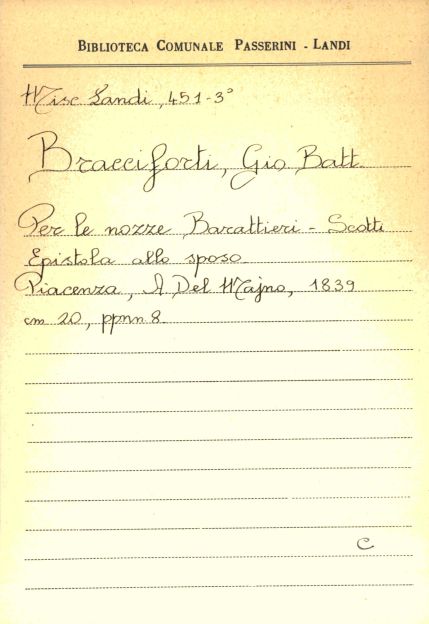 BIBLIOTECA COMUNALE PASSERINI - LANDI
Misc Landi, 451-3°
Bracciforti, Gio Batt.
Per le nozze Barattieri - Scotti
Epistola allo sposo
Piacenza, A Del Majno, 1839
cm 20, ppnn. 8
C